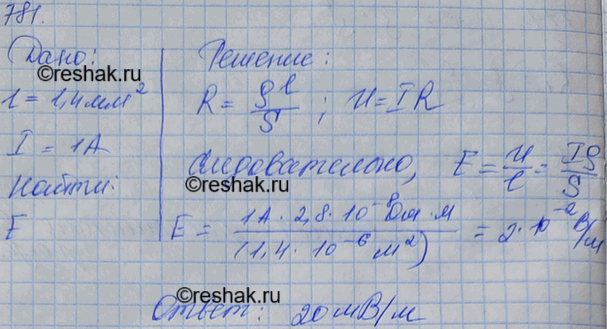 781.
Дано:
l = 1,4 мм²
I = 1А
Найти:
E
Решение:
R = ρl/S ; U = IR
Следовательно, E = U/l = Iρ/S
E = 1А · 2,8 · 10⁻⁸ Ом · м / (1,4 · 10⁻⁶ м²) = 2 · 10⁻² В/м
Ответ: 20 мВ/м
©reshak.ru
©reshak.ru
©reshak.ru
©reshak.ru
©reshak.ru